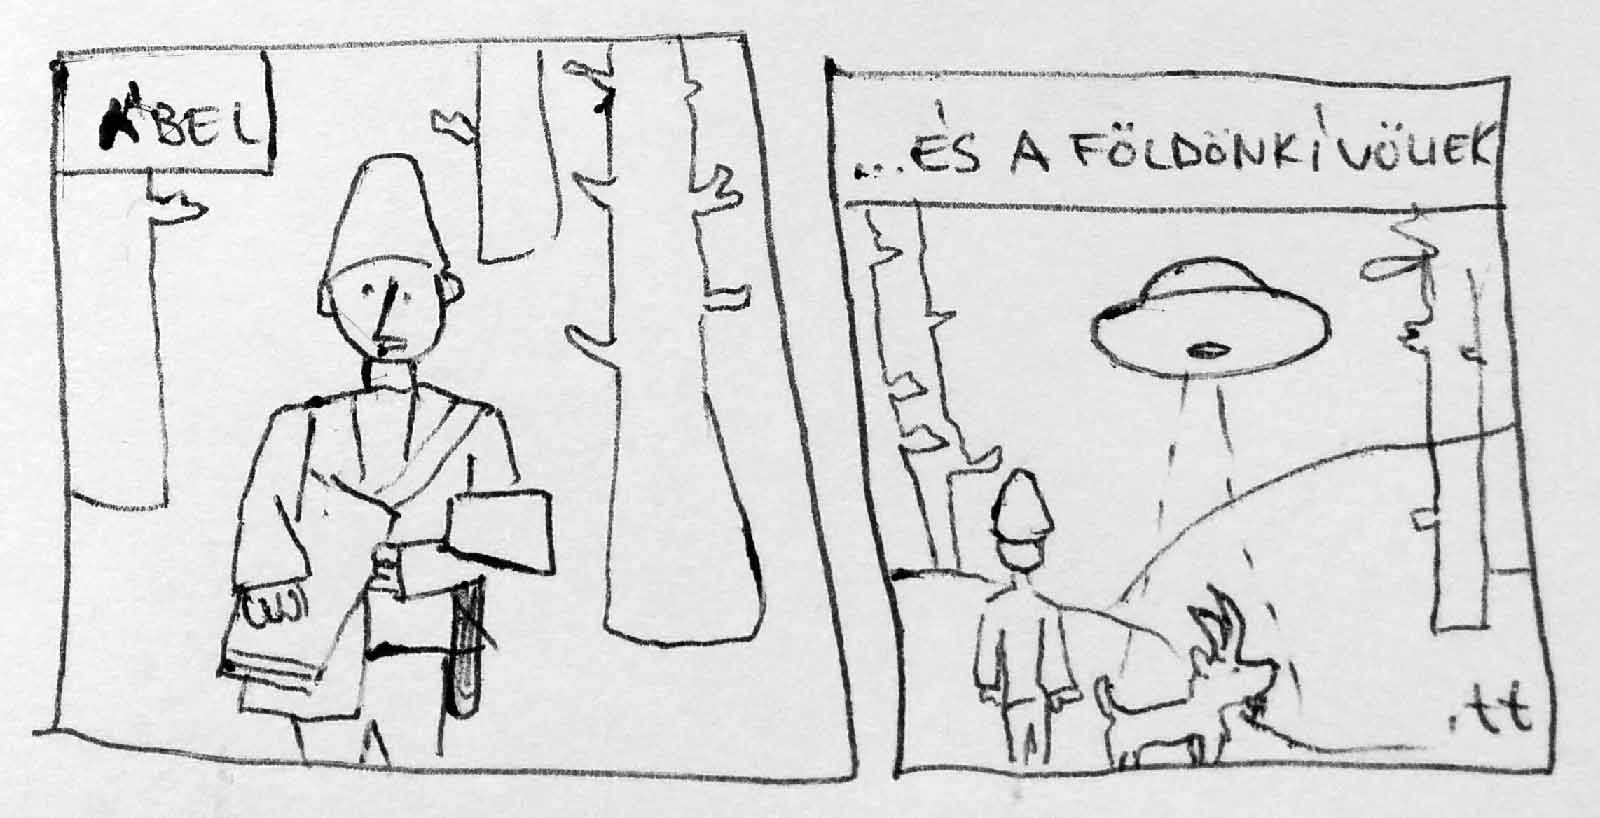 ÁBEL
...ÉS A FÖLDÖNKÍVÜLIEK
.tt